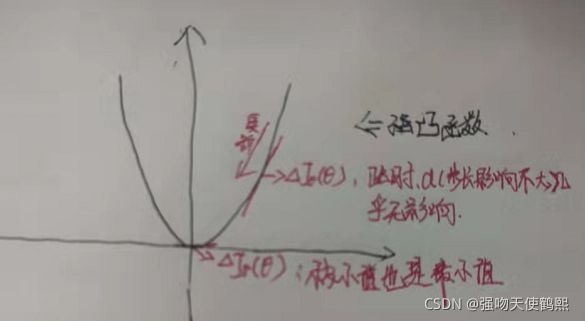 负方向
<= 强凸函数.
-> ΔJn(θ), 此时, α(步长影响不大)几
乎无影响.
-> ΔJn(θ): 极小值也是最小值
CSDN @强吻天使鹤熙